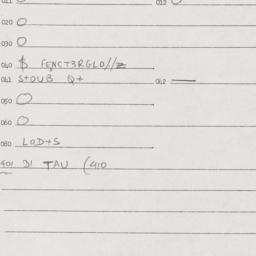 020 O
030 O
040 $ FENCT3RGLO//Z
041 S+OUB Q+ 042 —
050 O
060 O
080 LOD+S
401 DI TAU (410